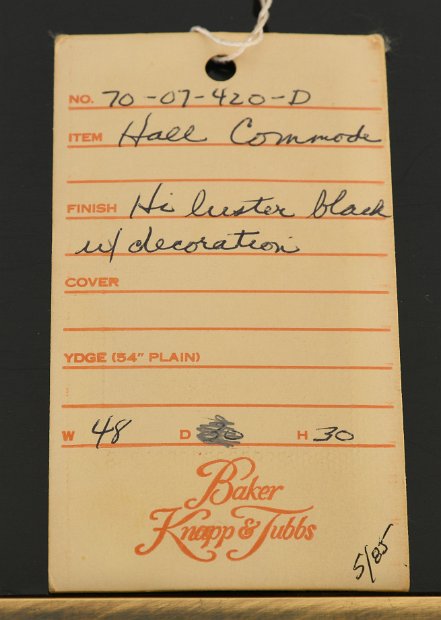 NO. 70-07-420-D
ITEM Hall Commode
FINISH Hi luster black
w/ decoration
COVER
YDGE (54" PLAIN)
W 48 D H 30
Baker
Knapp & Tubbs
5/85